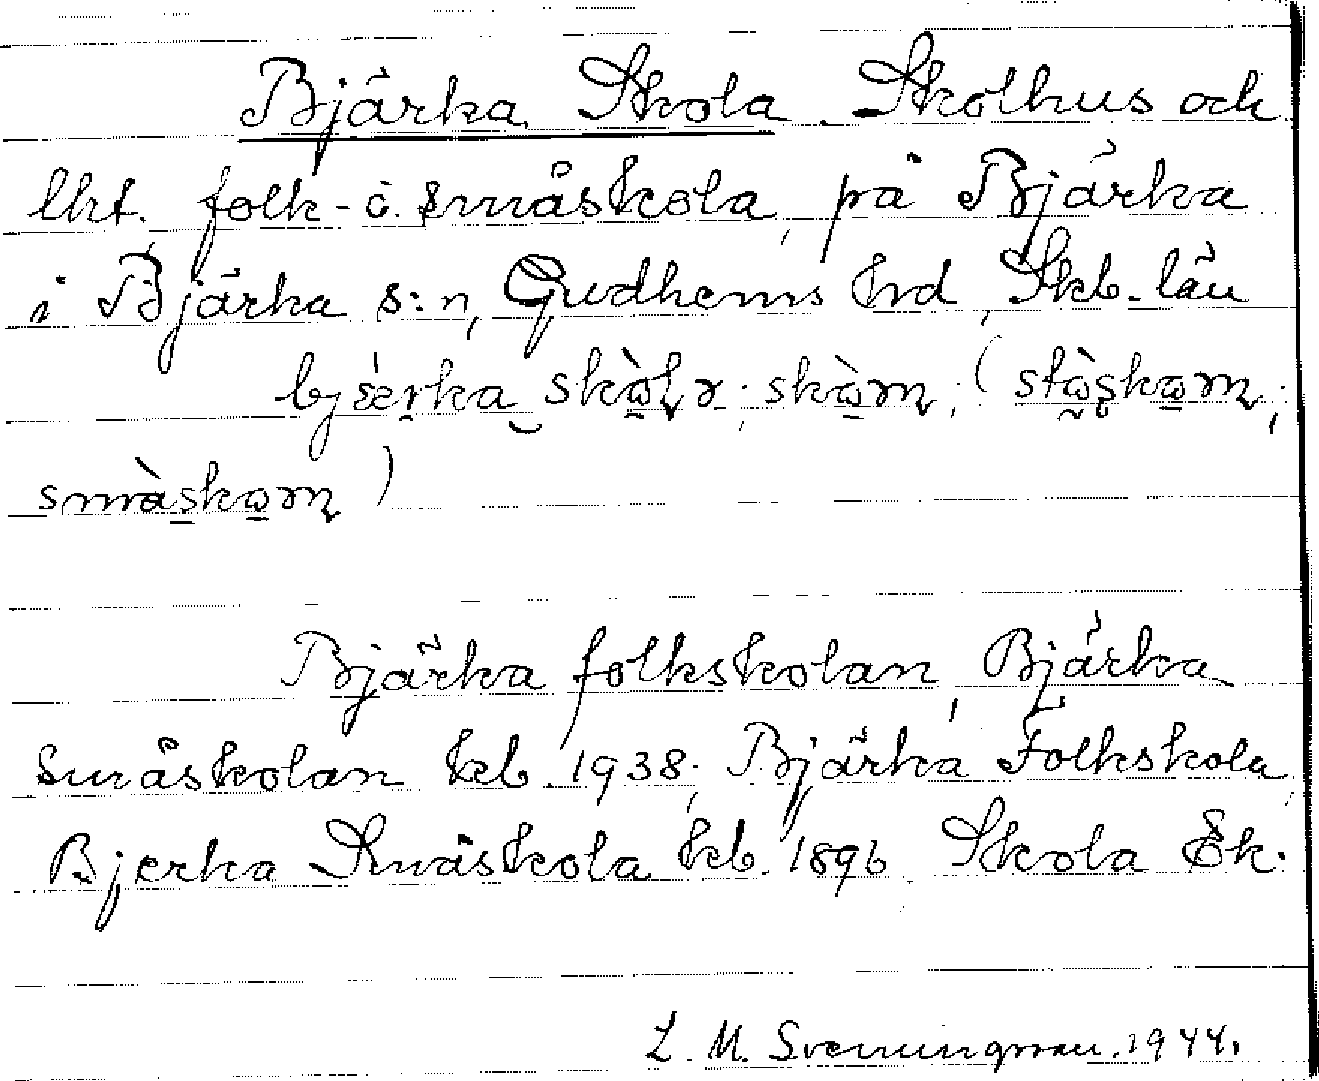 Bjärka Skola. Skolhus och
lht. folk- o. småskola, på Bjärka
i Bjärka s:n, Gudhems hd, Skb. län
småskoṃ)
Bjärka folkskolan, Bjärka
småskolan kb 1938; Bjärka Folkskola,
Bjerka Småskola kb. 1896. Skola Ek.
L. M. Svenungsson. 1944.